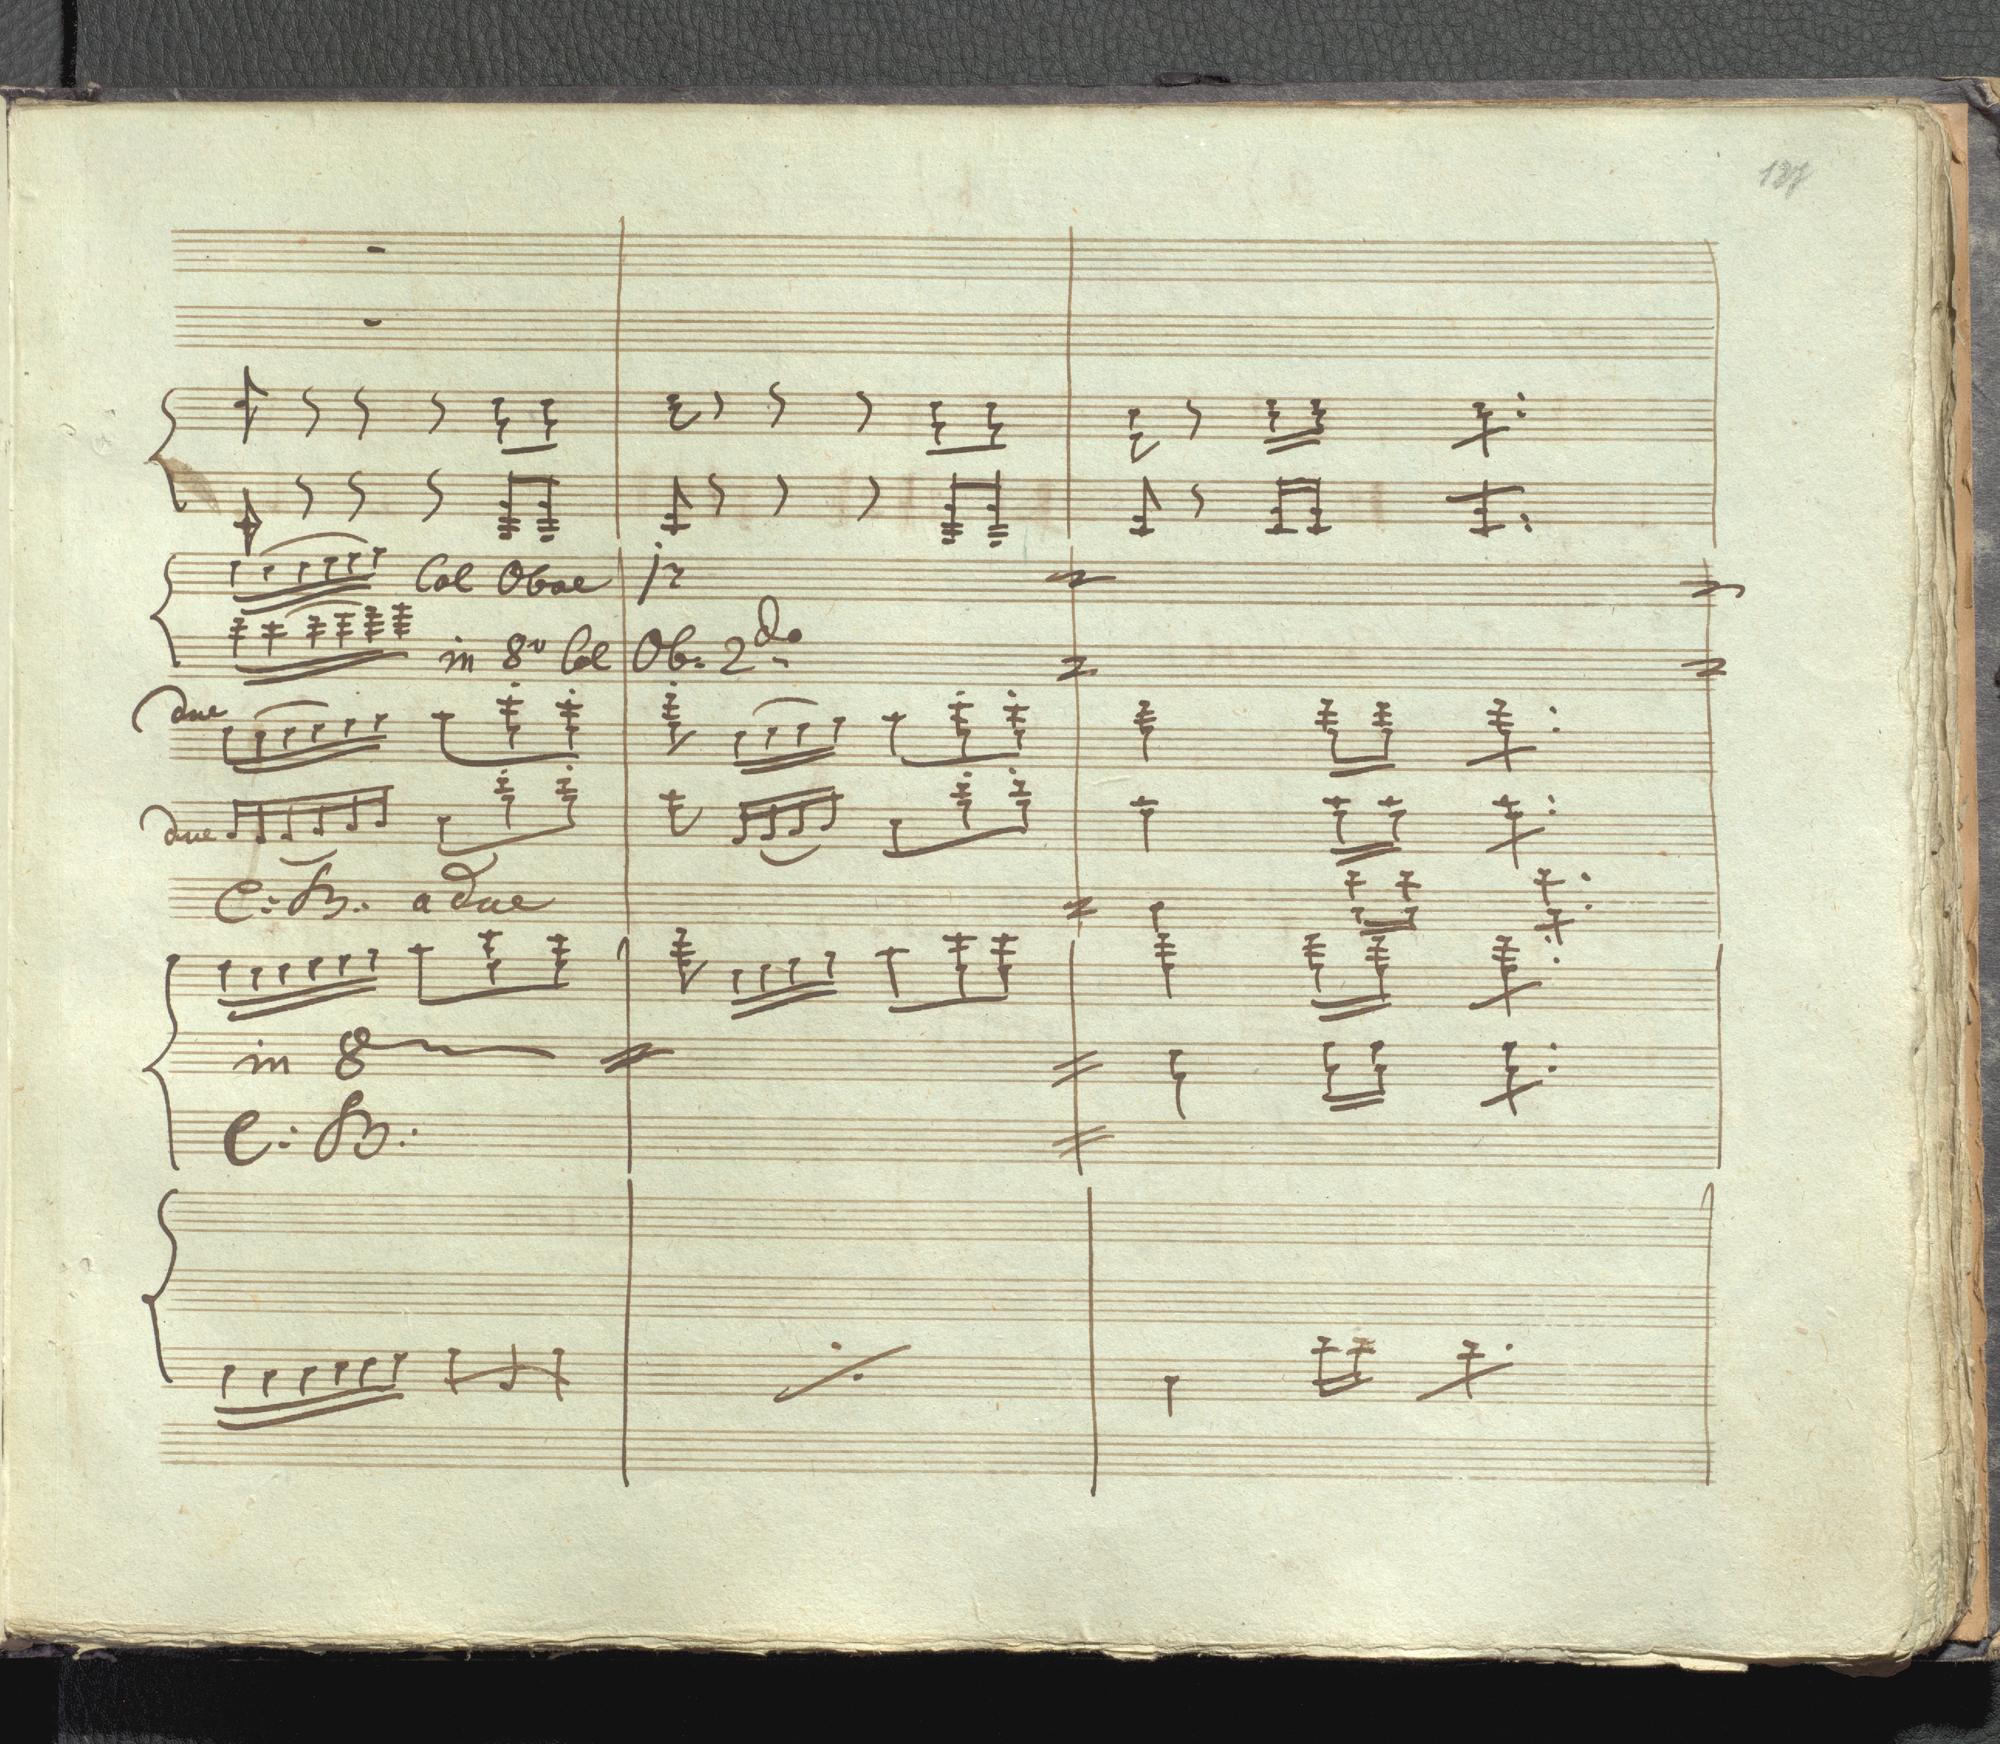 Col Oboe 1º
in 8v Col Ob: 2do
due
due
C: B: a due
in 8
C: B: